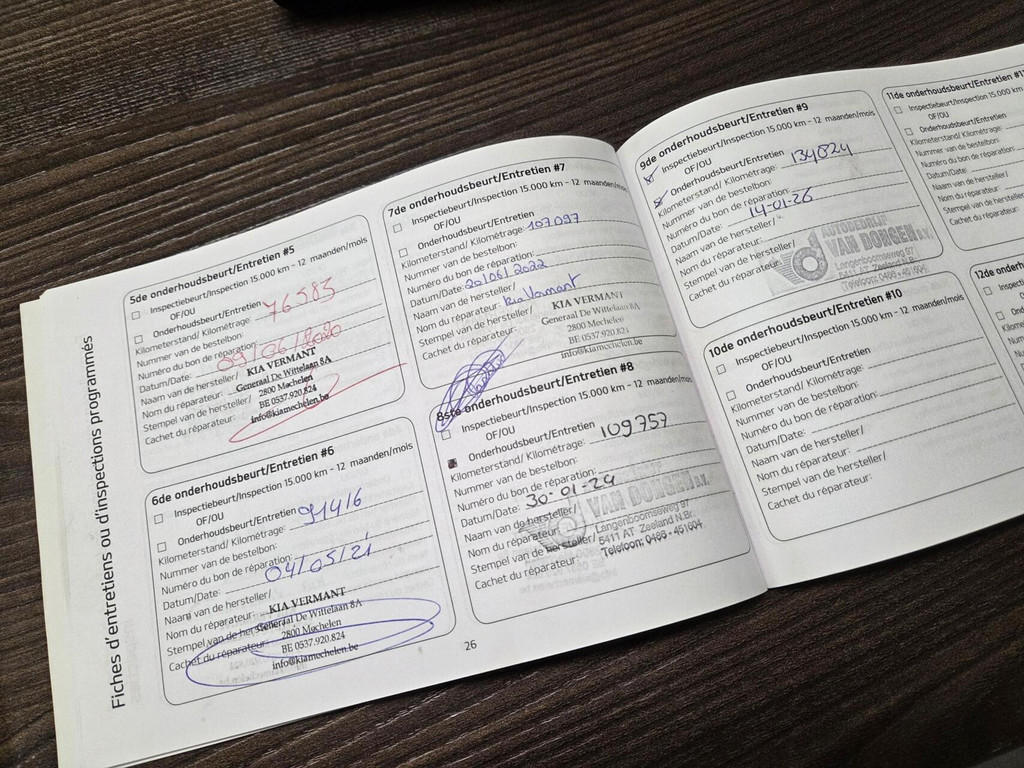 Fiches d'entretiens ou d'inspections programmés
5de onderhoudsbeurt/Entretien #5
Inspectiebeurt/Inspection 15.000 km – 12 maanden/mois
OF/OU
Onderhoudsbeurt/Entretien
Kilometerstand/ Kilométrage: 76583
Nummer van bestelbon:
Numéro du bon de réparation:
Datum/Date: 09/06/2020
Naam van de hersteller/
Nom du réparateur:
Stempel van de hersteller/
Cachet du réparateur:
KIA VERMANT
Generaal De Wittelaan 8A
2800 Mechelen
BE 0537.920.824
info@kiamechelen.be
6de onderhoudsbeurt/Entretien #6
Inspectiebeurt/Inspection 15.000 km – 12 maanden/mois
OF/OU
Onderhoudsbeurt/Entretien
Kilometerstand/ Kilométrage: 91416
Nummer van bestelbon:
Numéro du bon de réparation:
Datum/Date: 04/05/21
Naam van de hersteller/
Nom du réparateur:
Stempel van de hersteller/
Cachet du réparateur:
KIA VERMANT
Generaal De Wittelaan 8A
2800 Mechelen
BE 0537.920.824
info@kiamechelen.be
7de onderhoudsbeurt/Entretien #7
Inspectiebeurt/Inspection 15.000 km – 12 maanden/mois
OF/OU
Onderhoudsbeurt/Entretien
Kilometerstand/ Kilométrage: 107097
Nummer van bestelbon:
Numéro du bon de réparation:
Datum/Date: 20/06/2022
Naam van de hersteller/
Nom du réparateur: Kia Vermant
Stempel van de hersteller/
Cachet du réparateur:
KIA VERMANT
Generaal De Wittelaan 8A
2800 Mechelen
BE 0537.920.824
info@kiamechelen.be
8ste onderhoudsbeurt/Entretien #8
Inspectiebeurt/Inspection 15.000 km – 12 maanden/mois
OF/OU
Onderhoudsbeurt/Entretien
Kilometerstand/ Kilométrage: 109757
Nummer van bestelbon:
Numéro du bon de réparation:
Datum/Date: 30-01-24
Naam van de hersteller/
Nom du réparateur:
Stempel van de hersteller/
Cachet du réparateur:
VAN DONGEN B.V.
Langenboomseweg 97
5411 AT Zeeland N.Br.
Telefoon: 0486-451604
26
9de onderhoudsbeurt/Entretien #9
Inspectiebeurt/Inspection 15.000 km – 12 maanden/mois
OF/OU
Onderhoudsbeurt/Entretien
Kilometerstand/ Kilométrage: 134824
Nummer van bestelbon:
Numéro du bon de réparation:
Datum/Date: 14-01-26
Naam van de hersteller/
Nom du réparateur:
Stempel van de hersteller/
Cachet du réparateur:
AUTOBEDRIJF
VAN DONGEN B.V.
Langenboomseweg 97
5411 AT Zeeland N.Br.
Telefoon: 0486-451604
10de onderhoudsbeurt/Entretien #10
Inspectiebeurt/Inspection 15.000 km – 12 maanden/mois
OF/OU
Onderhoudsbeurt/Entretien
Kilometerstand/ Kilométrage:
Nummer van bestelbon:
Numéro du bon de réparation:
Datum/Date:
Naam van de hersteller/
Nom du réparateur:
Stempel van de hersteller/
Cachet du réparateur:
11de onderhoudsbeurt/Entretien
Inspectiebeurt/Inspection 15.000 km
OF/OU
Onderhoudsbeurt/Entretien
Kilometerstand/ Kilométrage:
Nummer van bestelbon:
Numéro du bon de réparation:
Datum/Date:
Naam van de hersteller/
Nom du réparateur:
Stempel van de hersteller/
Cachet du réparateur:
12de onderhoud